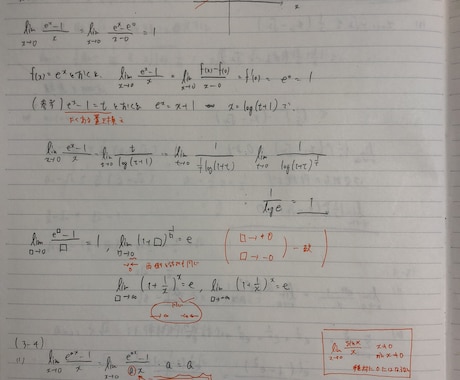 x
lim x→0 (e^x-1)/x = lim x→0 (e^x-e^0)/(x-0) = 1
f(x)=e^x とおくと lim x→0 (e^x-1)/x = lim x→0 (f(x)-f(0))/(x-0) = f'(0) = e^0 = 1
(参考) e^x-1=t とおくと e^x=t+1 ⇔ x=log(t+1)
lim x→0 (e^x-1)/x = lim t→0 t/log(t+1) = lim t→0 1/((1/t)log(t+1)) = lim t→0 1/log(1+t)^(1/t)
= 1/log e = 1
lim □→0 (e^□-1)/□ = 1, lim □→0 (1+□)^(1/□) = e
(□→+0 □→-0) 一致
lim (1+1/x)^x = e, lim (1+1/x)^x = e
(3-4)
(1) lim x→0 (e^ax-1)/x = lim x→0 (e^ax-1)/ax a = a
lim x→0 sinx/x x≠0